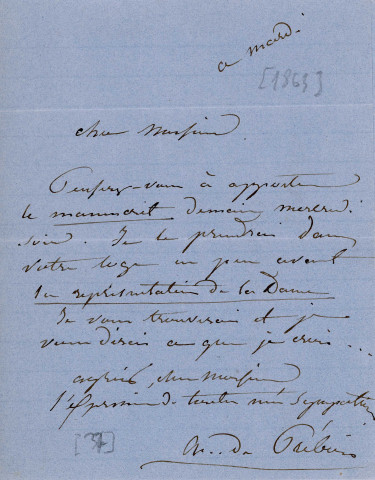 ce mardi
[1863]
cher Monsieur
Pensez-vous à apporter
le manuscrit demain mercredi
soir. Je le prendrai dans
votre loge un peu avant
la représentation de la Dame
Je vous trouverai et je
vous dirai ce que je crois...
agréez, cher Monsieur
l'expression de toutes mes sympathies
[37]
de